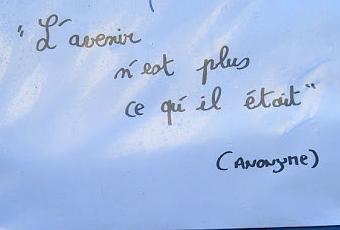 "L'avenir
n'est plus
ce qu'il était"
(ANONYME)